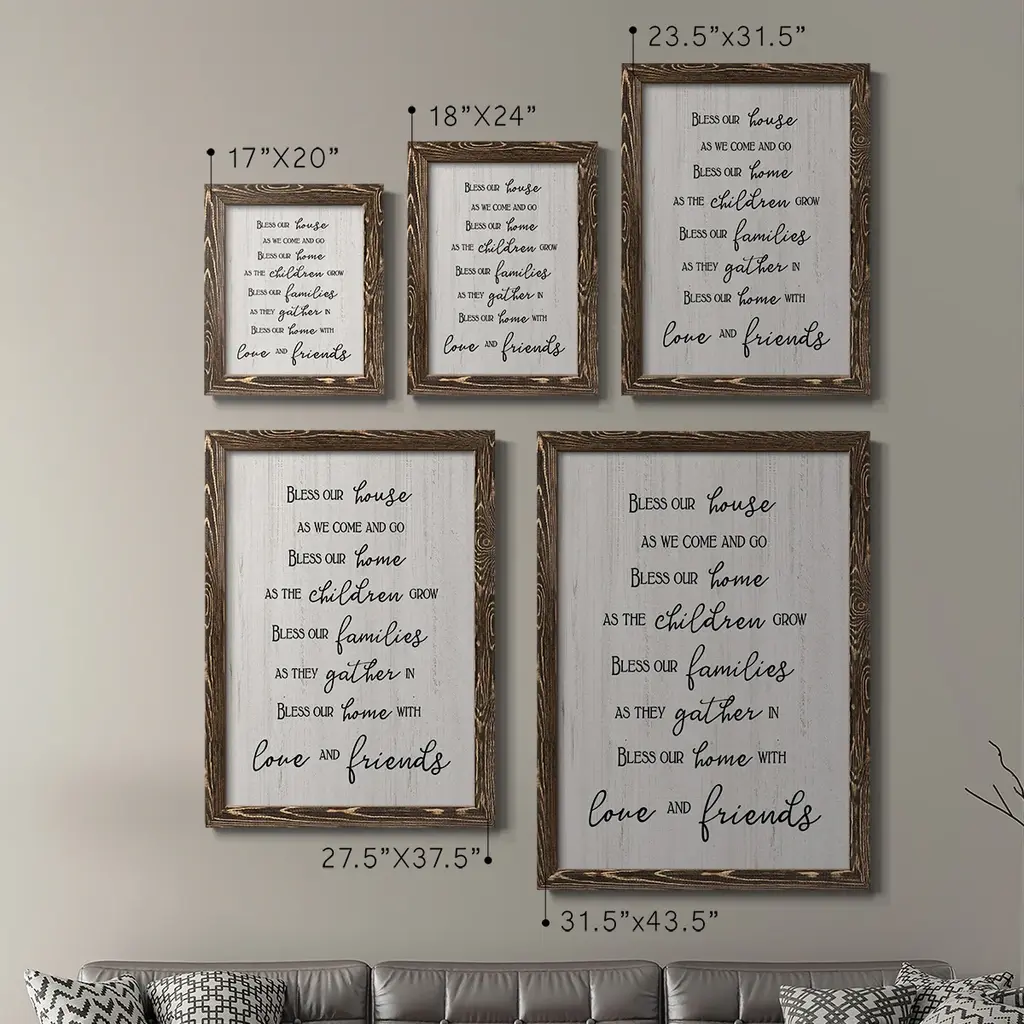 17”X20”
Bless our house
as we come and go
Bless our home
as the children grow
Bless our families
as they gather in
Bless our home with
love and friends
18”X24”
Bless our house
as we come and go
Bless our home
as the children grow
Bless our families
as they gather in
Bless our home with
love and friends
23.5”x31.5”
Bless our house
as we come and go
Bless our home
as the children grow
Bless our families
as they gather in
Bless our home with
love and friends
Bless our house
as we come and go
Bless our home
as the children grow
Bless our families
as they gather in
Bless our home with
love and friends
27.5”X37.5”
Bless our house
as we come and go
Bless our home
as the children grow
Bless our families
as they gather in
Bless our home with
love and friends
31.5”x43.5”